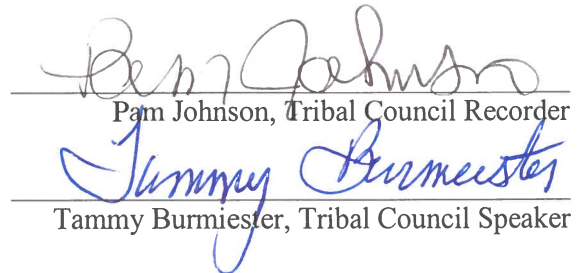 Pam Johnson
Pam Johnson, Tribal Council Recorder
Tammy Burmeister
Tammy Burmiester, Tribal Council Speaker